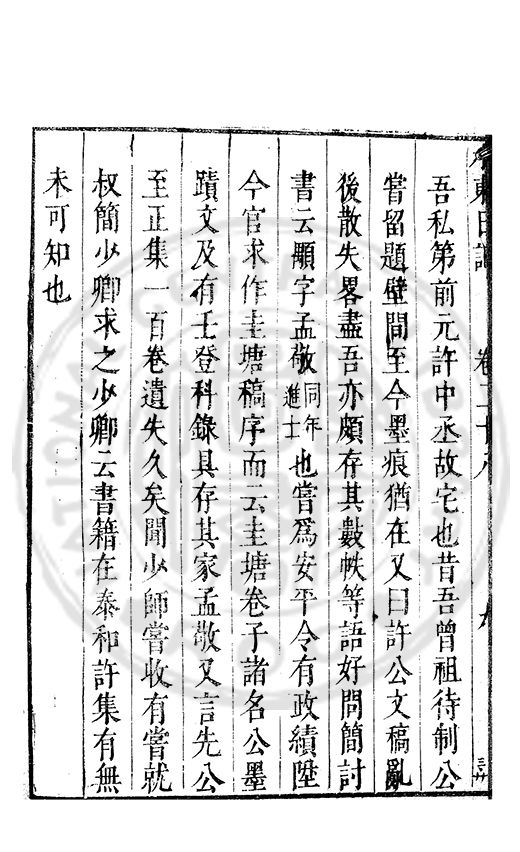 東日記 卷二十八 九
吾私第前元許中丞故宅也昔吾曾祖待制公
嘗留題壁間至今墨痕猶在又曰許公文稿亂
後散失畧盡吾亦頗存其數帙等語好問簡討
書云顒字孟敬同年進士也嘗爲安平令有政績陞
今官求作圭塘稿序而云圭塘卷子諸名公墨
蹟文及有壬登科錄具存其家孟敬又言先公
至正集一百卷遺失久矣聞少師嘗收有嘗就
叔簡少卿求之少卿云書籍在泰和許集有無
未可知也